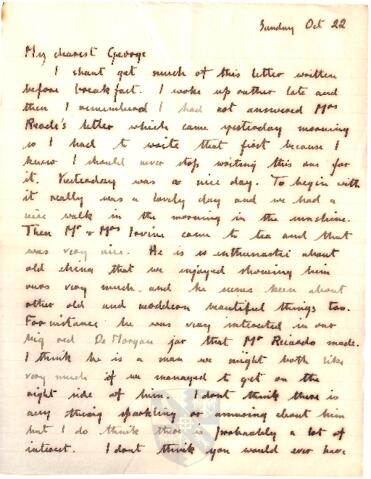 Sunday Oct 22
My dearest George
I shant get much of this letter written
before breakfast. I woke up rather late and
then I remembered I had not answered Mrs
Reade's letter which came yesterday morning
so I had to write that first because I
knew I should never stop writing this one for
it. Yesterday was a nice day. To begin with
it really was a lovely day and we had a
nice walk in the morning in the sunshine.
Then Mr & Mrs Irvine came to tea and that
was very nice. He is so enthusiastic about
old china that we enjoyed showing him
ours very much and he seems keen about
other old and modern beautiful things too.
For instance he was very interested in our
big red De Morgan jar that Mr Ricardo made.
I think he is a man we might both like
very much if we managed to get on the
right side of him. I dont think there is
any thing sparkling or amusing about him
but I do think there is probably a lot of
interest. I dont think you would ever have